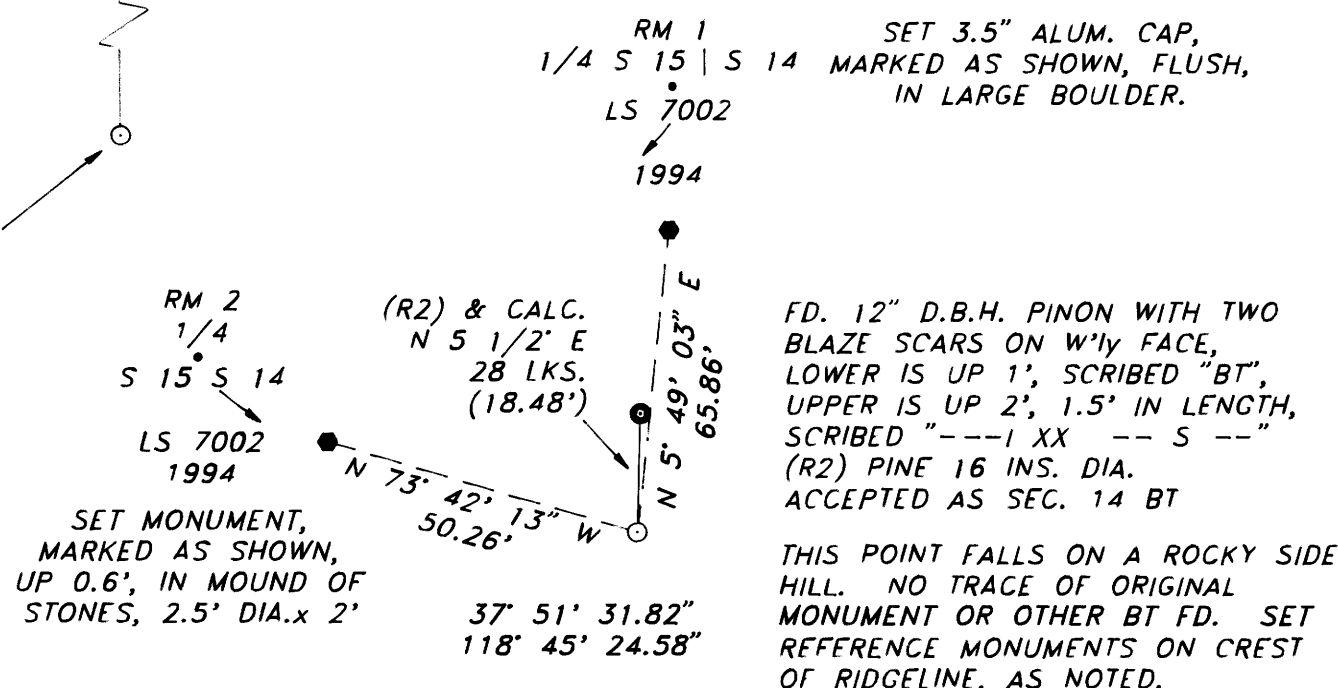 RM 1
1/4 S 15 | S 14
LS 7002
1994
SET 3.5" ALUM. CAP,
MARKED AS SHOWN, FLUSH,
IN LARGE BOULDER.
RM 2
1/4
S 15 S 14
LS 7002
1994
SET MONUMENT,
MARKED AS SHOWN,
UP 0.6', IN MOUND OF
STONES, 2.5' DIA.x 2'
(R2) & CALC.
N 5 1/2° E
28 LKS.
(18.48')
N 5° 49' 03" E
65.86'
N 73° 42' 13" W
50.26'
37° 51' 31.82"
118° 45' 24.58"
FD. 12" D.B.H. PINON WITH TWO
BLAZE SCARS ON W'ly FACE,
LOWER IS UP 1', SCRIBED "BT",
UPPER IS UP 2', 1.5' IN LENGTH,
SCRIBED "---I XX -- S --"
(R2) PINE 16 INS. DIA.
ACCEPTED AS SEC. 14 BT
THIS POINT FALLS ON A ROCKY SIDE
HILL. NO TRACE OF ORIGINAL
MONUMENT OR OTHER BT FD. SET
REFERENCE MONUMENTS ON CREST
OF RIDGELINE, AS NOTED.